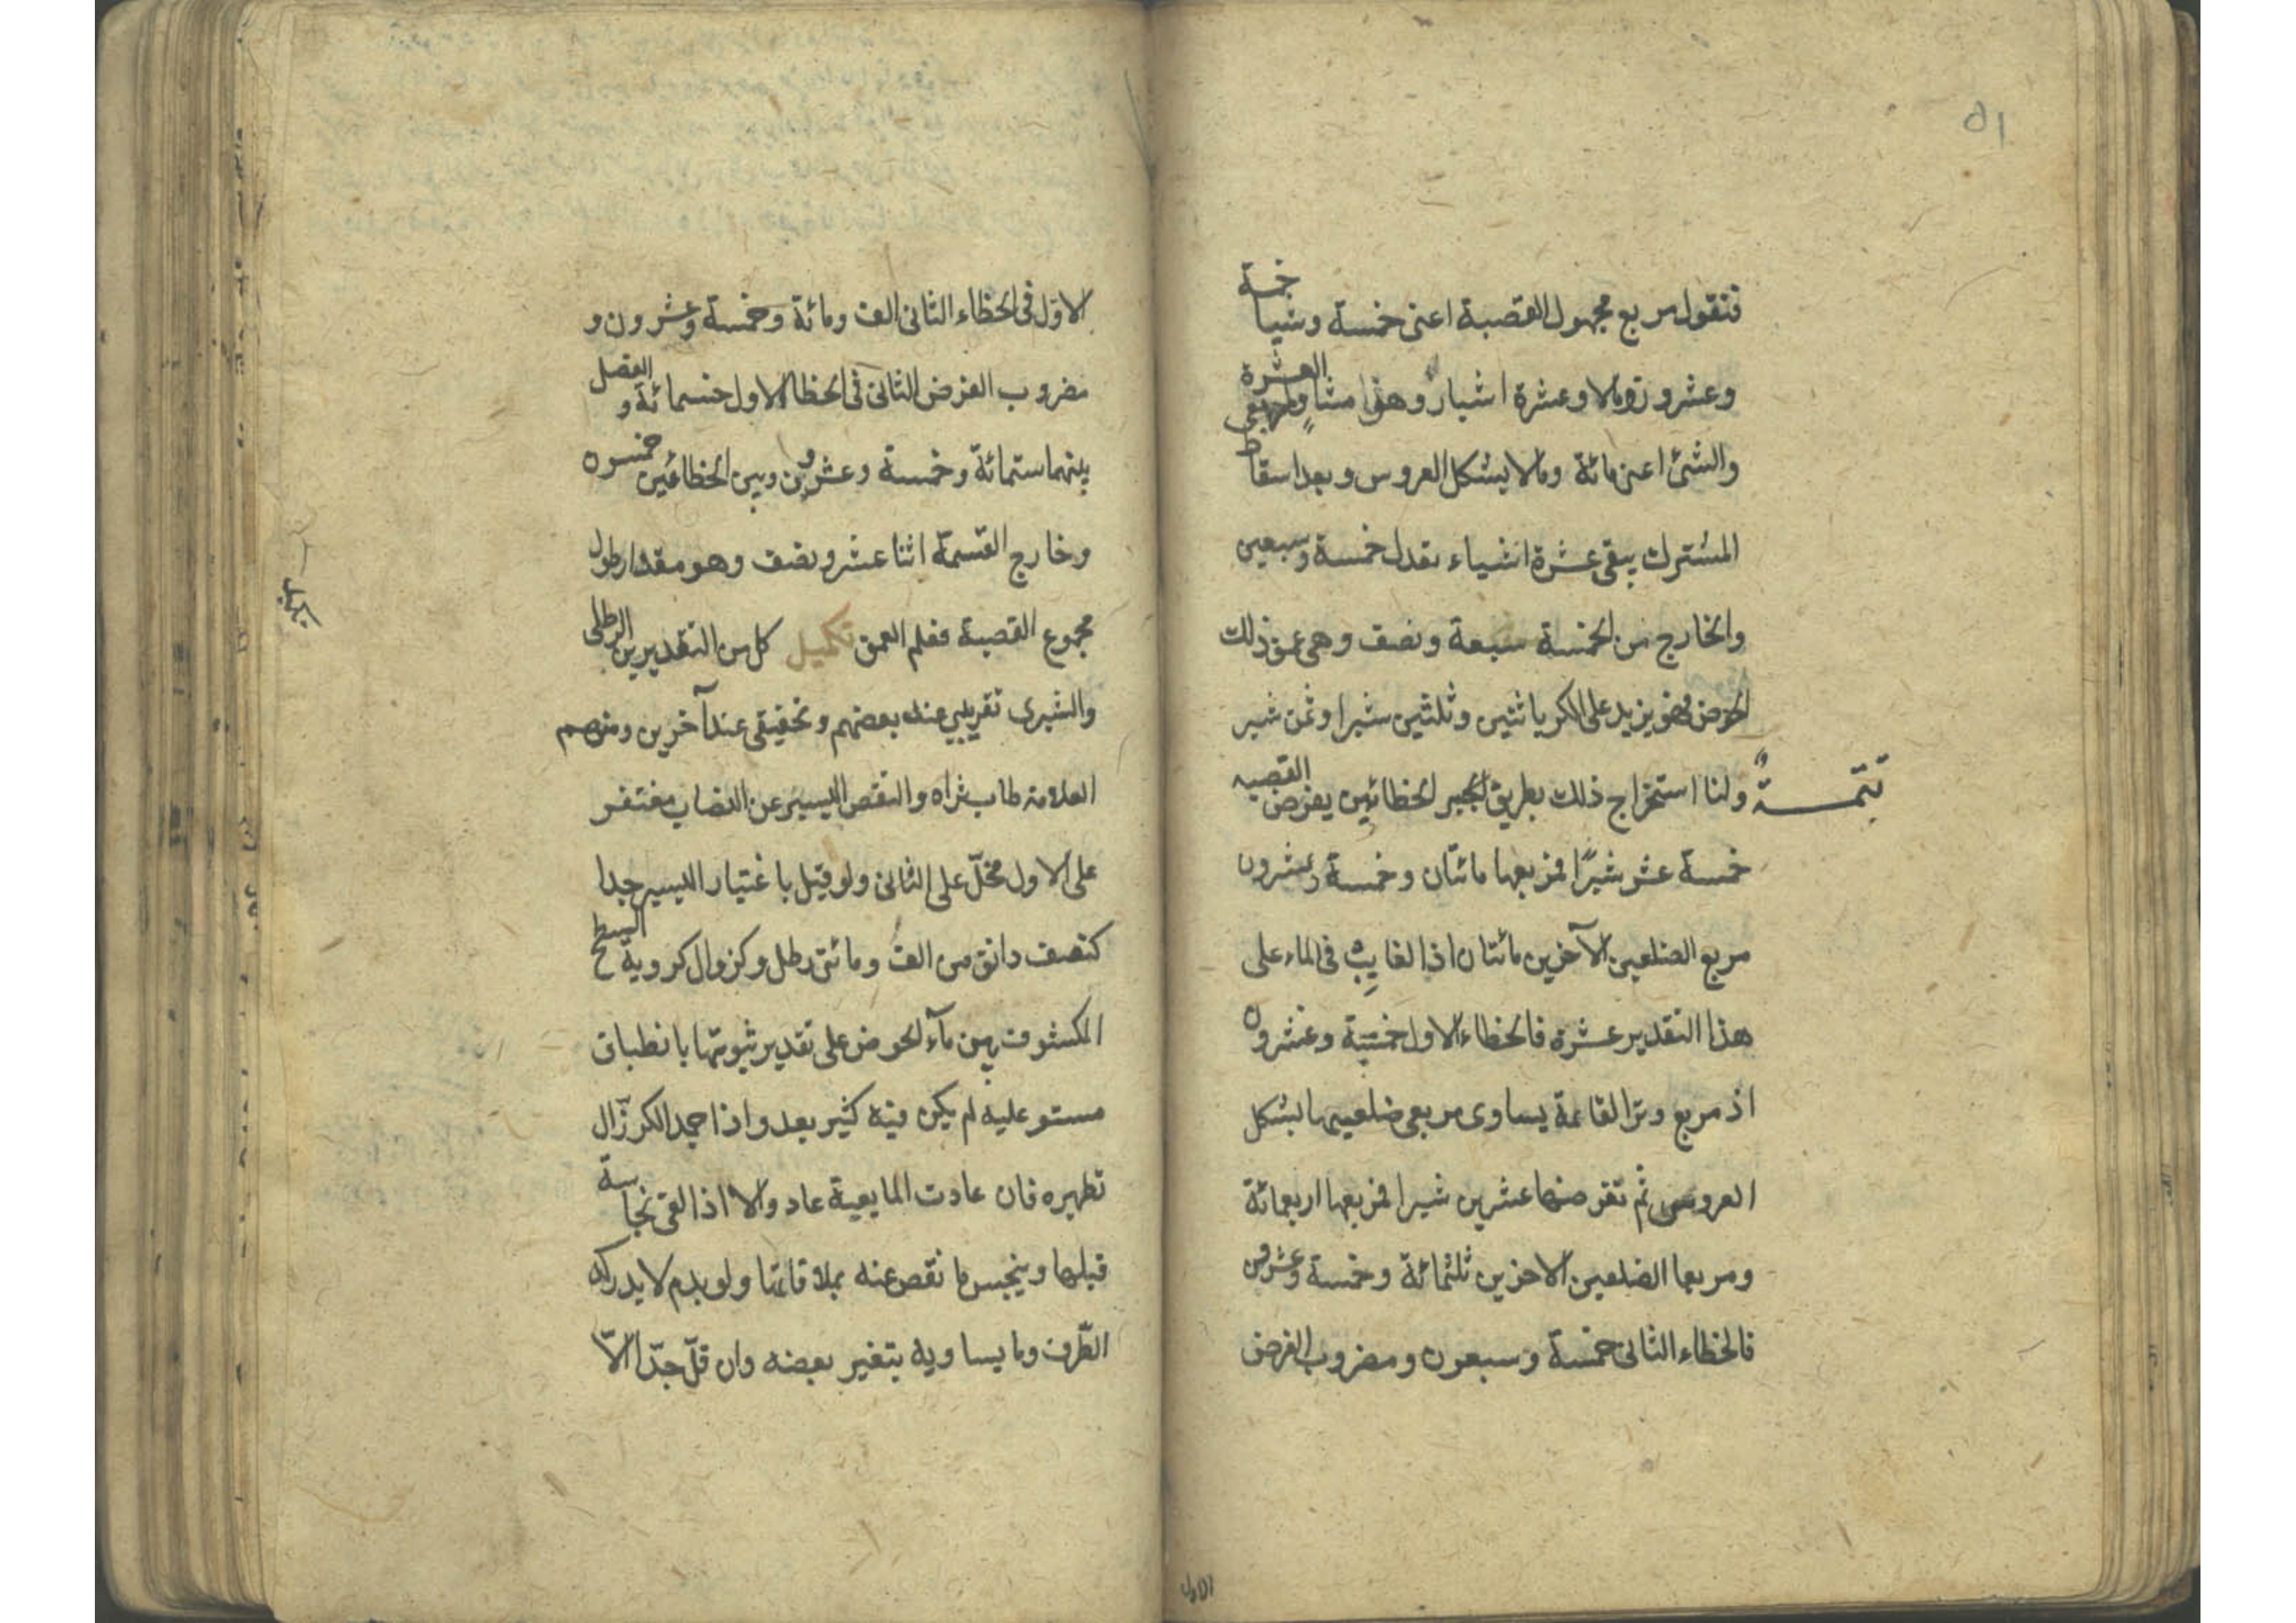 ٥١
فنقول مربع مجهول القصبة اعنى خمسة وشيأ خمسة
وعشرو زومالا وعشرة اشيار وهو مساولمربعى العشرة
والشئ اعنى مائة ومالا بشكل العروس وبعد اسقاط
المشترك يبقى عشرة اشياء تعدل خمسة وسبعين
والخارج من الخمسة سبعة ونصف وهى عمق ذلك
الحوض فهو يزيد على الكر باثنين وثلثين شبرا وثمن شبر
تتمة ولنا استخراج ذلك بطريق الجبر الخطائين يفرض القصبه
خمسة عشر شبرًا فمربعها مائتان وخمسة وعشرون
مربع الضلعين الآخرين مائتان اذا لغايب فى الماء على
هذا التقدير عشرة فالخطاء الاول خمسة وعشرون
اذ مربع وتر القائمة يساوى مربعى ضلعيها بشكل
العروس ثم تفرضها عشرين شبرا فمربعها اربعمائة
ومربعا الضلعين الاخرين ثلثمائة وخمسة وعشرون
فالخطاء الثانى خمسة وسبعون ومضروب الفرض
الاول
الاول فى الخطاء الثانى الف ومائة وخمسة وعشرون و
مضروب الفرض الثانى فى الخطا الاول خمسمائة و الفضل
بينهما ستمائة وخمسة وعشرين وبين الخطائين خمسون
وخارج القسمة اثنا عشر ونصف وهو مقدار طول
مجموع القصبة فعلم العمق تكميل كل من التقديرين الرطلى
والشبرى تقريبي عند بعضهم وتحقيقى عند آخرين ومنهم
العلامة طاب ثراه والنقص اليسير عن النصاب مغتفر
على الاول مخلّ على الثانى ولو قيل باغتيار اليسير جدا
كنصف دانق من الف ومائتى رطل وكزوال كروية السطح
المكشوف من مآء الحوض على تقدير ثبوتها بانطباق
مستو عليه لم يكن فيه كثير بعد واذا جمد الكر زال
تطهيره فان عادت المايعية عاد والا اذا القى نجاسة
قبلها وينجس ما نقص عنه بملاقاتها ولو بدم لا يدركه
الطّرف وما يساويه بتغير بعضه وان قلّ جدّا الاّ